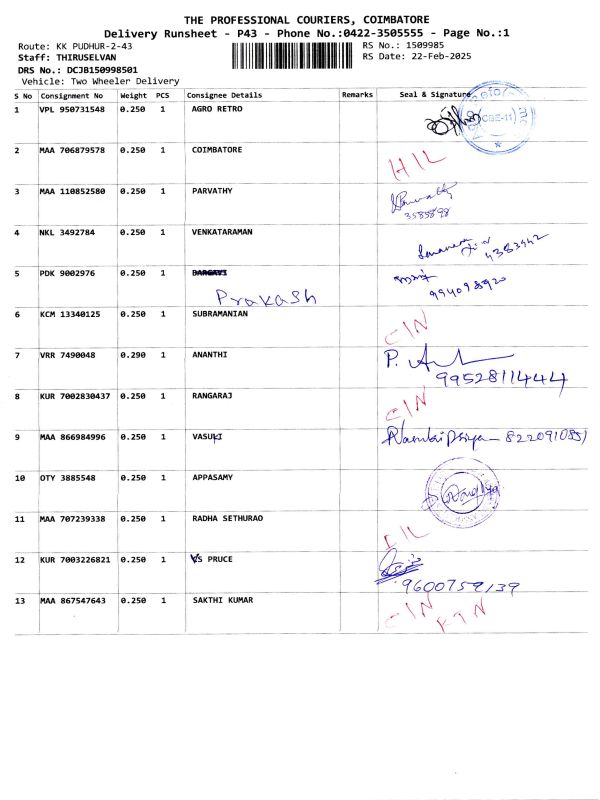 THE PROFESSIONAL COURIERS, COIMBATORE
Delivery Runsheet - P43 - Phone No.:0422-3505555 - Page No.:1
Route: KK PUDHUR-2-43 RS No.: 1509985
Staff: THIRUSELVAN RS Date: 22-Feb-2025
DRS No.: DCJB150998501
Vehicle: Two Wheeler Delivery
S No Consignment No Weight PCS Consignee Details Remarks Seal & Signature
1 VPL 950731548 0.250 1 AGRO RETRO CBE-11
2 MAA 706879578 0.250 1 COIMBATORE HIL
3 MAA 110852580 0.250 1 PARVATHY
3585898
4 NKL 3492784 0.250 1 VENKATARAMAN 4383942
5 PDK 9002976 0.250 1
Prakash 994098920
6 KCM 13340125 0.250 1 SUBRAMANIAN CIN
7 VRR 7490048 0.290 1 ANANTHI P.
9952811444
8 KUR 7002830437 0.250 1 RANGARAJ CIN
9 MAA 866984996 0.250 1 VASUKI 8220910851
10 OTY 3885548 0.250 1 APPASAMY
11 MAA 707239338 0.250 1 RADHA SETHURAO IIL
12 KUR 7003226821 0.250 1 VS PRUCE
9600759139
13 MAA 867547643 0.250 1 SAKTHI KUMAR CIN